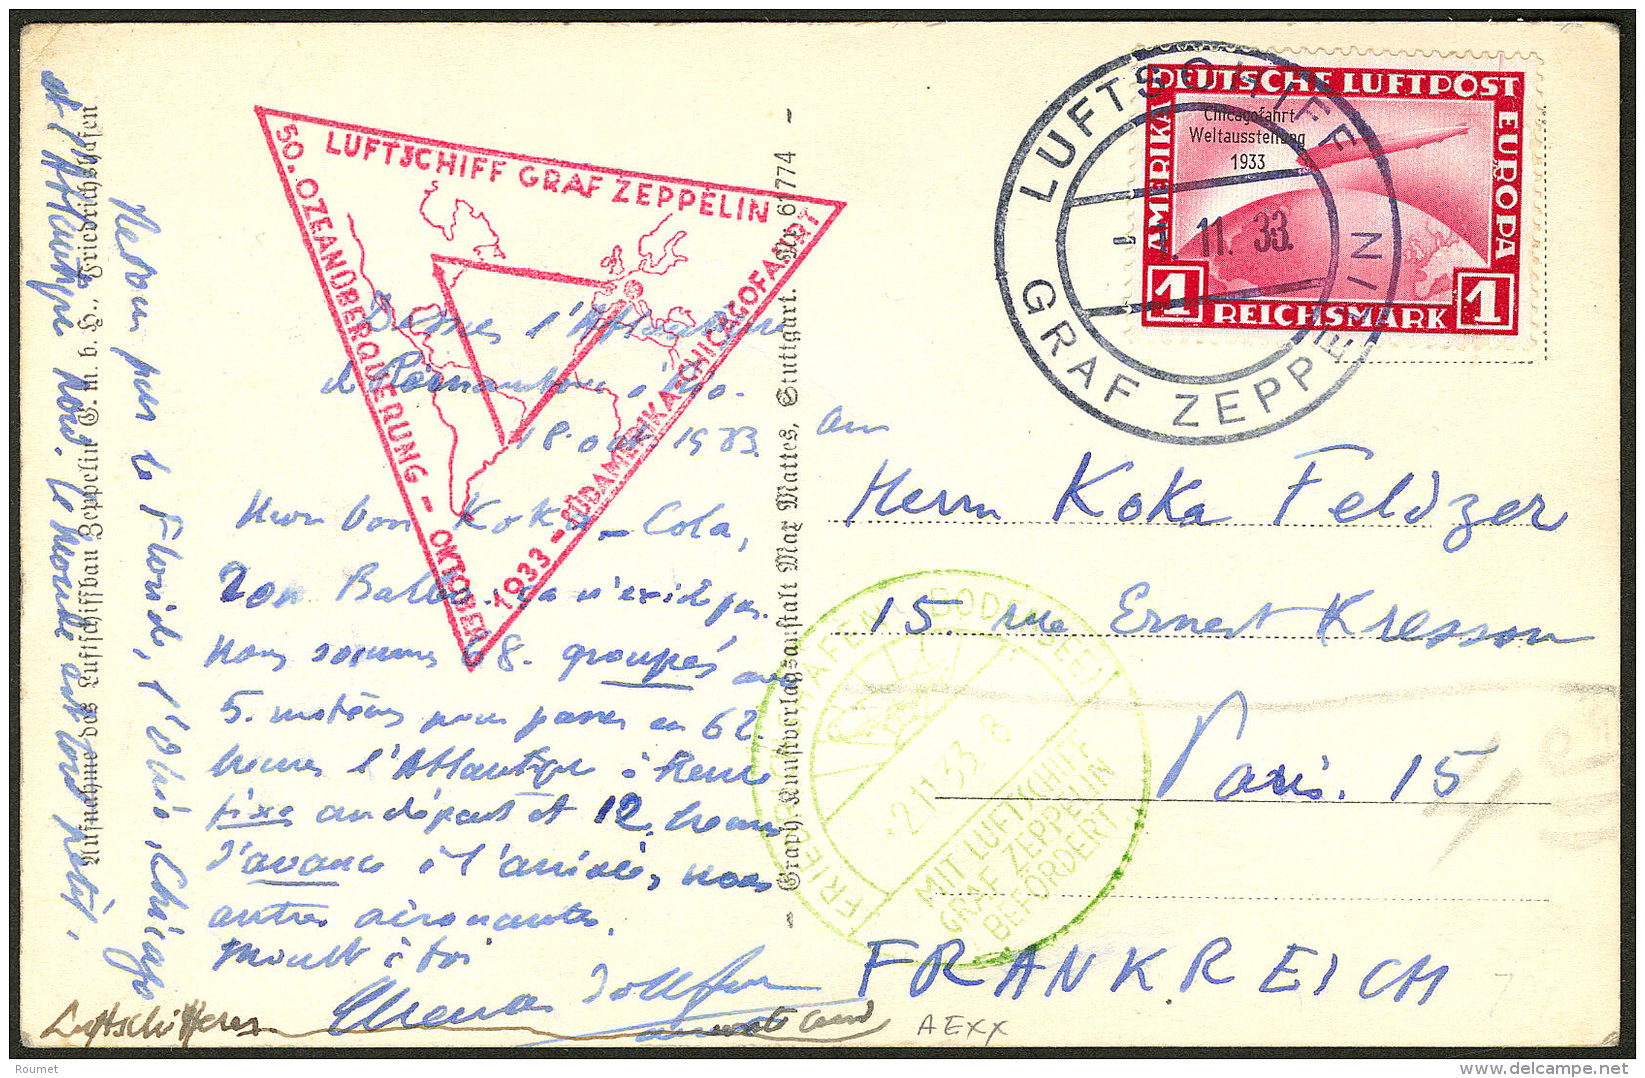 50. OZEANÜBERQUERUNG - OKTOBER
LUFTSCHIFF GRAF ZEPPELIN
1933 - SÜDAMERIKA-CHICAGOFAHRT
LUFTSCHIFF
GRAF ZEPPELIN
11. 33.
DEUTSCHE LUFTPOST
AMERIKA
EUROPA
Chicagofahrt
Weltausstellung
1933
1 REICHSMARK 1
Aufnahme des Luftschiffbau Zeppelin G. m. b. H., Friedrichshafen
- Graph. Kunstverlagsanstalt Max Mattes, Stuttgart. Nr. 61774 -
Dans l'Atlantique
18. oct. 1933.
Herrn von Koka-Cola,
Ton Balbo, ça n'existe pas.
Nous sommes 68. groupés avec
5. moteurs pour passer en 62.
heures l'Atlantique à heure
fixe au départ et 12 heures
d'avance à l'arrivée, nous
autres aéronautes.
à toi
Retour par la Floride, l'Ohio, Chicago
et l'Atlantique Nord. Le monde est tout petit.
Luftschifferes
an
Herrn Koka Feldzer
15. rue Ernest Kresson
Paris. 15
FRANKREICH
FRIEDRICHSHAFEN (BODENSEE)
2.11.33. 8
MIT LUFTSCHIFF
GRAF ZEPPELIN
BEFÖRDERT
AEXX
Roumet
delcampe.net